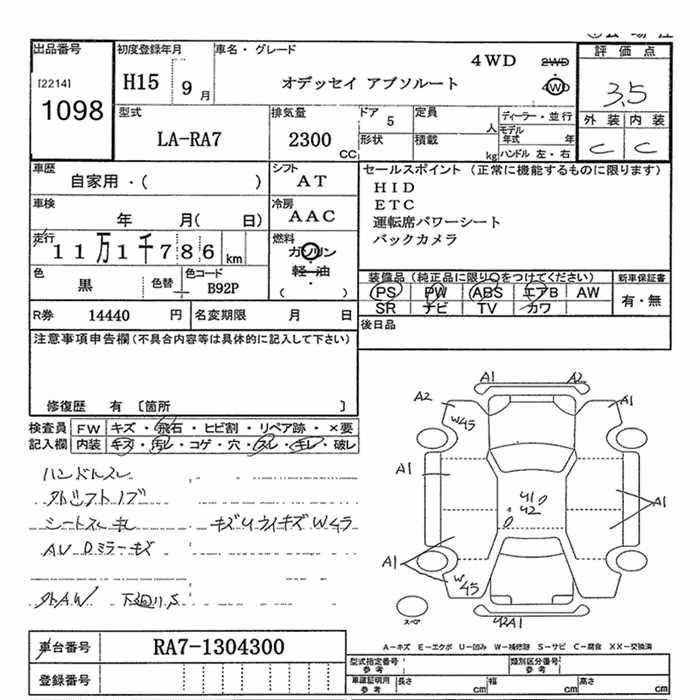 出品番号
[2214]
1098
初度登録年月
H15 9 月
車名・グレード
4WD 2WD
オデッセイ アブソルート 4WD
評価点
3.5
外装 内装
C C
型式
LA-RA7
排気量
2300 CC
ドア 5
形状
定員 人
積載 kg
ディーラー・並行
モデル年式 年
ハンドル 左・右
車歴
自家用・( )
シフト
AT
セールスポイント (正常に機能するものに限ります)
HID
ETC
運転席パワーシート
バックカメラ
車検
年 月( 日)
冷房
AAC
走行
11万1千786 km
燃料
ガソリン
軽・油
( )
色
黒
色替
色コード
B92P
装備品 (純正品に限り〇をつけてください)
PS PW ABS エアB AW
SR ナビ TV カワ
新車保証書
有・無
R券 14440 円
名変期限 月 日
後日品
注意事項申告欄 (不具合内容等は具体的に記入して下さい)
修復歴 有 〔箇所 〕
検査員 FW キズ・飛石・ヒビ割・リペア跡・×要
記入欄 内装 キズ・汚レ・コゲ・穴・スレ・キレ・破レ
ハンドルスレ
外シフトノブ
シートスレ キレ
キズU ウイキズ W45
AV Dミラーキズ
外AW 下廻りS
A1 A2
A2 A1
W45
A1
U1
U2
A1
A1
W45
スペア
U2A1
A-キズ E-エクボ U-凹み W-補修跡 S-サビ C-腐食 XX-交換済
車台番号
RA7-1304300
登録番号
型式指定番号
参考
類別区分番号
参考
車庫証明用
参考
長さ cm 幅 cm 高さ cm